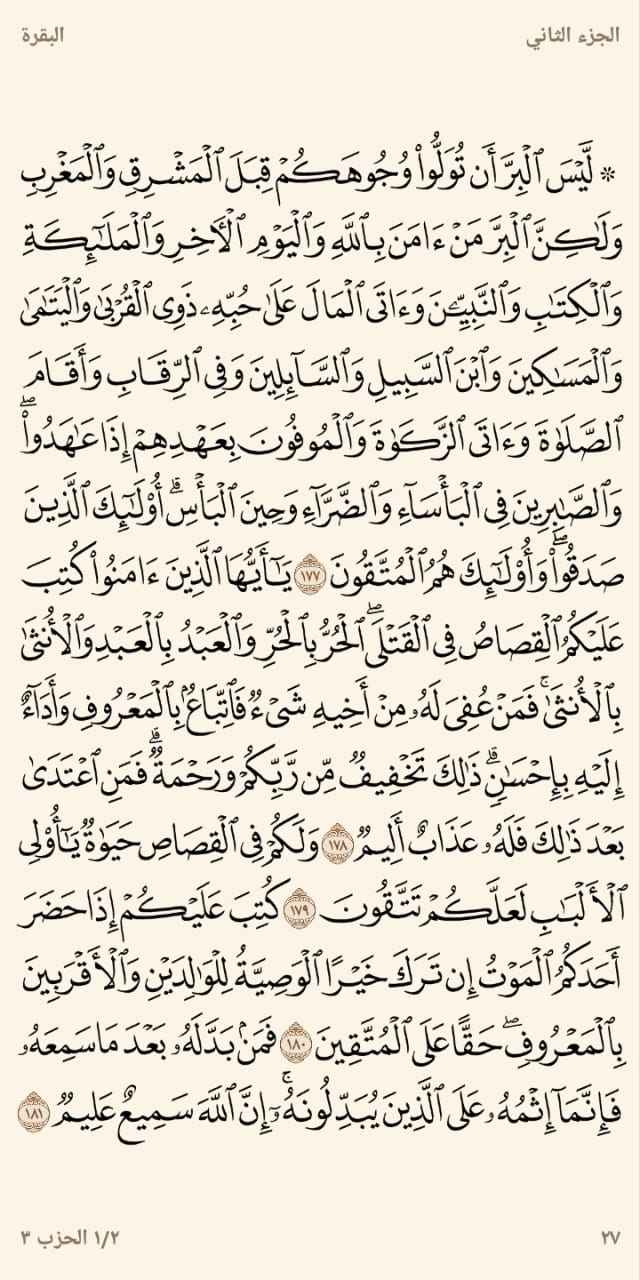 الجزء الثاني
البقرة
۞ لَّيۡسَ ٱلۡبِرَّ أَن تُوَلُّواْ وُجُوهَكُمۡ قِبَلَ ٱلۡمَشۡرِقِ وَٱلۡمَغۡرِبِ
وَلَٰكِنَّ ٱلۡبِرَّ مَنۡ ءَامَنَ بِٱللَّهِ وَٱلۡيَوۡمِ ٱلۡأٓخِرِ وَٱلۡمَلَٰٓئِكَةِ
وَٱلۡكِتَٰبِ وَٱلنَّبِيِّـۧنَ وَءَاتَى ٱلۡمَالَ عَلَىٰ حُبِّهِۦ ذَوِي ٱلۡقُرۡبَىٰ وَٱلۡيَتَٰمَىٰ
وَٱلۡمَسَٰكِينَ وَٱبۡنَ ٱلسَّبِيلِ وَٱلسَّآئِلِينَ وَفِي ٱلرِّقَابِ وَأَقَامَ
ٱلصَّلَوٰةَ وَءَاتَى ٱلزَّكَوٰةَ وَٱلۡمُوفُونَ بِعَهۡدِهِمۡ إِذَا عَٰهَدُواْۖ
وَٱلصَّٰبِرِينَ فِي ٱلۡبَأۡسَآءِ وَٱلضَّرَّآءِ وَحِينَ ٱلۡبَأۡسِۗ أُوْلَٰٓئِكَ ٱلَّذِينَ
صَدَقُواْۖ وَأُوْلَٰٓئِكَ هُمُ ٱلۡمُتَّقُونَ ١٧٧ يَٰٓأَيُّهَا ٱلَّذِينَ ءَامَنُواْ كُتِبَ
عَلَيۡكُمُ ٱلۡقِصَاصُ فِي ٱلۡقَتۡلَىۖ ٱلۡحُرُّ بِٱلۡحُرِّ وَٱلۡعَبۡدُ بِٱلۡعَبۡدِ وَٱلۡأُنثَىٰ
بِٱلۡأُنثَىٰۚ فَمَنۡ عُفِيَ لَهُۥ مِنۡ أَخِيهِ شَيۡءٞ فَٱتِّبَاعُۢ بِٱلۡمَعۡرُوفِ وَأَدَآءٌ
إِلَيۡهِ بِإِحۡسَٰنٖۗ ذَٰلِكَ تَخۡفِيفٞ مِّن رَّبِّكُمۡ وَرَحۡمَةٞۗ فَمَنِ ٱعۡتَدَىٰ
بَعۡدَ ذَٰلِكَ فَلَهُۥ عَذَابٌ أَلِيمٞ ١٧٨ وَلَكُمۡ فِي ٱلۡقِصَاصِ حَيَوٰةٞ يَٰٓأُوْلِي
ٱلۡأَلۡبَٰبِ لَعَلَّكُمۡ تَتَّقُونَ ١٧٩ كُتِبَ عَلَيۡكُمۡ إِذَا حَضَرَ
أَحَدَكُمُ ٱلۡمَوۡتُ إِن تَرَكَ خَيۡرًا ٱلۡوَصِيَّةُ لِلۡوَٰلِدَيۡنِ وَٱلۡأَقۡرَبِينَ
بِٱلۡمَعۡرُوفِۖ حَقًّا عَلَى ٱلۡمُتَّقِينَ ١٨٠ فَمَنۢ بَدَّلَهُۥ بَعۡدَ مَا سَمِعَهُۥ
فَإِنَّمَآ إِثۡمُهُۥ عَلَى ٱلَّذِينَ يُبَدِّلُونَهُۥٓۚ إِنَّ ٱللَّهَ سَمِيعٌ عَلِيمٞ ١٨١
٢٧
١/٢ الحزب ٣